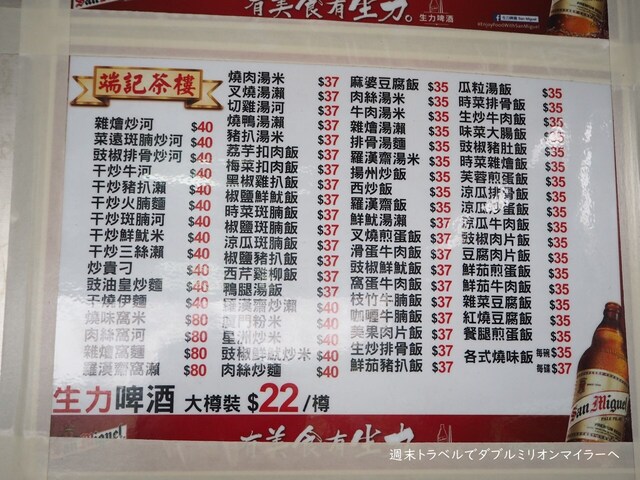 有美食有生力。
生力啤酒
端記茶樓
雜燴炒河 $40
菜遠斑腩炒河 $40
豉椒排骨炒河 $40
干炒牛河 $40
干炒豬扒瀨 $40
干炒火腩麵 $40
干炒斑腩河 $40
干炒鮮魷米 $40
干炒三絲瀨 $40
炒貴刁 $40
豉油皇炒麵 $40
干燒伊麵 $40
燒味窩米 $80
肉絲窩河 $80
雜燴窩麵 $80
羅漢齋窩瀨 $80
燒肉湯米 $37
叉燒湯瀨 $37
切雞湯河 $37
燒鴨湯瀨 $37
豬扒湯米 $37
荔芋扣肉飯 $37
梅菜扣肉飯 $37
黑椒雞扒飯 $37
椒鹽鮮魷飯 $37
時菜斑腩飯 $37
椒鹽斑腩飯 $37
涼瓜斑腩飯 $37
西芹雞柳飯 $37
鴨腿湯飯 $37
羅漢齋炒瀨 $40
門粉米 $40
星洲炒米 $40
豉椒鮮魷炒米 $40
肉絲炒麵 $40
麻婆豆腐飯 $35
肉絲湯米 $35
牛肉湯米 $35
雜燴湯瀨 $35
排骨湯麵 $35
羅漢齋湯米 $35
揚州炒飯 $35
西炒飯 $35
羅漢齋飯 $35
鮮魷湯瀨 $37
叉燒煎蛋飯 $37
滑蛋牛肉飯 $37
豉椒鮮魷飯 $37
窩蛋牛肉飯 $37
枝竹牛腩飯 $37
咖喱牛腩飯 $37
美果肉片飯 $37
生炒排骨飯 $37
鮮茄豬扒飯 $37
瓜粒湯飯 $35
時菜排骨飯 $35
生炒牛肉飯 $35
味菜大腸飯 $35
豉椒豬肚飯 $35
時菜雜燴飯 $35
芙蓉煎蛋飯 $35
涼瓜排骨飯 $35
涼瓜炒蛋飯 $35
涼瓜牛肉飯 $35
豉椒肉片飯 $35
豆腐肉片飯 $35
鮮茄煎蛋飯 $35
鮮茄牛肉飯 $35
雜菜豆腐飯 $35
紅燒豆腐飯 $35
餐腿煎蛋飯 $35
各式燒味飯 每碗 $35
每碟 $37
生力啤酒 大樽裝 $22/樽
San Miguel
有美食有生力。
週末トラベルでダブルミリオンマイラーへ